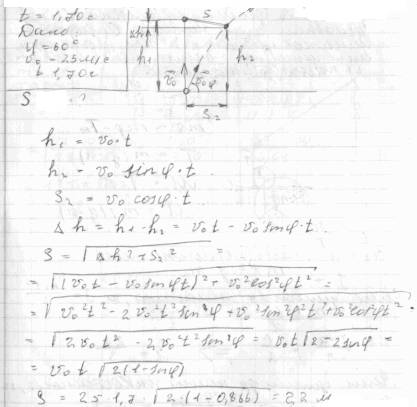 t = 1,70 с
Дано:
φ = 60°
v₀ = 25 м/с
t 1,70 с
S ?
Δh
h₁
S
h₂
v₀
v₀
φ
S₂
h₁ = v₀·t
h₂ = v₀ sinφ·t
S₂ = v₀ cosφ·t
Δh = h₁ - h₂ = v₀t - v₀ sinφ·t
S = √(Δh² + S₂²) =
= √((v₀t - v₀ sinφt)² + v₀² cos²φt²) =
= √(v₀²t² - 2v₀²t² sinφ + v₀² sin²φt² + v₀² cos²φt²) =
= √(2v₀t² - 2v₀²t² sinφ) = v₀t √(2 - 2sinφ) =
= v₀ t √(2(1 - sinφ))
S = 25 1,7 √(2·(1 - 0,866)) = 22 м